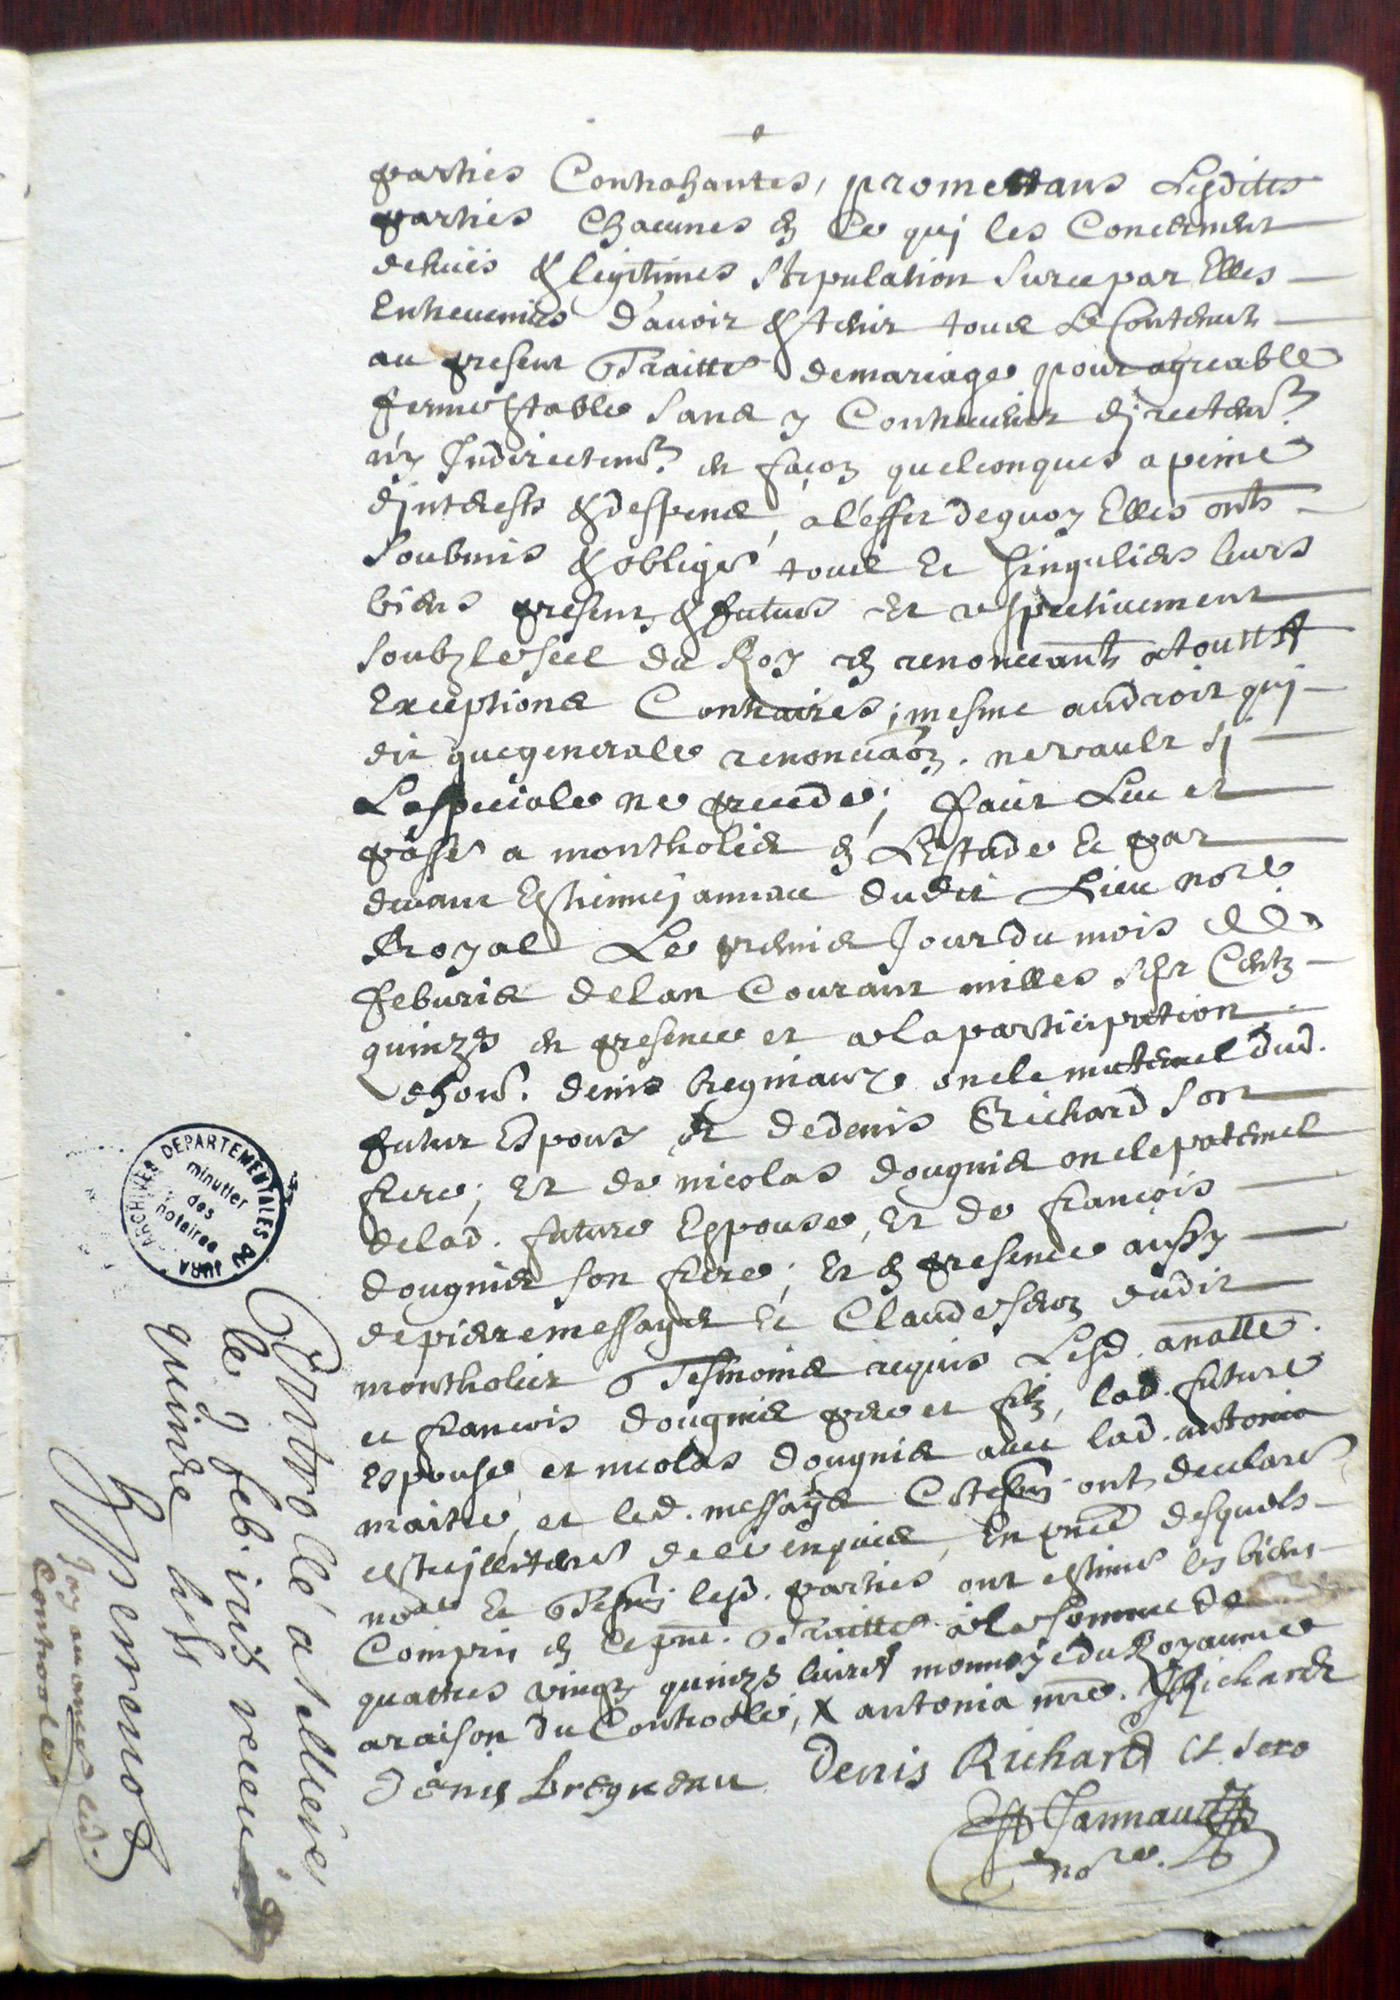 parties Contrahantes, promettans Lesdites
parties Chacunes en Ce qui les Concernent
dehües & legitimes Stipulation Surce par Elles
Entrevenües d'avoir & tenir tous Le Contenuts
au present Traitté demariage pour agreable
ferme stable Sans y Contrevenir directem.t
n'y Indirectem.t en façon quelconques a peine
d'interests & despens, a l'effet dequoy Elles onts
Soubmis & obligé tous Et Singuliers leurs
biens present & futurs Et respectivement
Soubz le Seel du Roy en renonceants a toutts
Exceptions Contraires, mesme au droit qui
dit que generale renonciaōn ne vault si
Lespeciale ne precede; faict Leu et
passé a montholier en L'Estude Et par
devant Estienne jannau dudit Lieu no.re
Royal Le premier Jour du mois de
feburier de lan Courant milles Sept Centz
quinze en presence et a la participation
d'hon. denis bregniaux oncle maternel dud.
futur Espoux et de denis Richard Son
frere; Et de nicolas dougnier oncle paternel
de lad. future Espouse, Et de françois
dougnier son frere; Et en presence aussy
de pierre messager Et Claude Seron dudit
montholier Tesmoins requis Lesd. anatle
et françois dougnier pere et filz, lad. future
Espouse, et nicolas dougnier avec lad. antonia
maitre, et led. messager Cotesm. ont declaré
estre jllitteré de ce enquier, En pnce desquels
no.re Et Tesm. lesd. parties ont estimé les biens
Compris en Ce pnt. Traitté a la Somme de
quattres vingt quinze livres monnoye du Royaume
a raison du Controole, X antonia mre. Richard
Denis bregneau Denis Richard Cl. Sero
Jannau
no.re
Controlé a Sellieres
le 7 feb. 1715 receu
quinze
Jay au

ARCHIVES DEPARTEMENTALES DU JURA
minutier
des
notaires